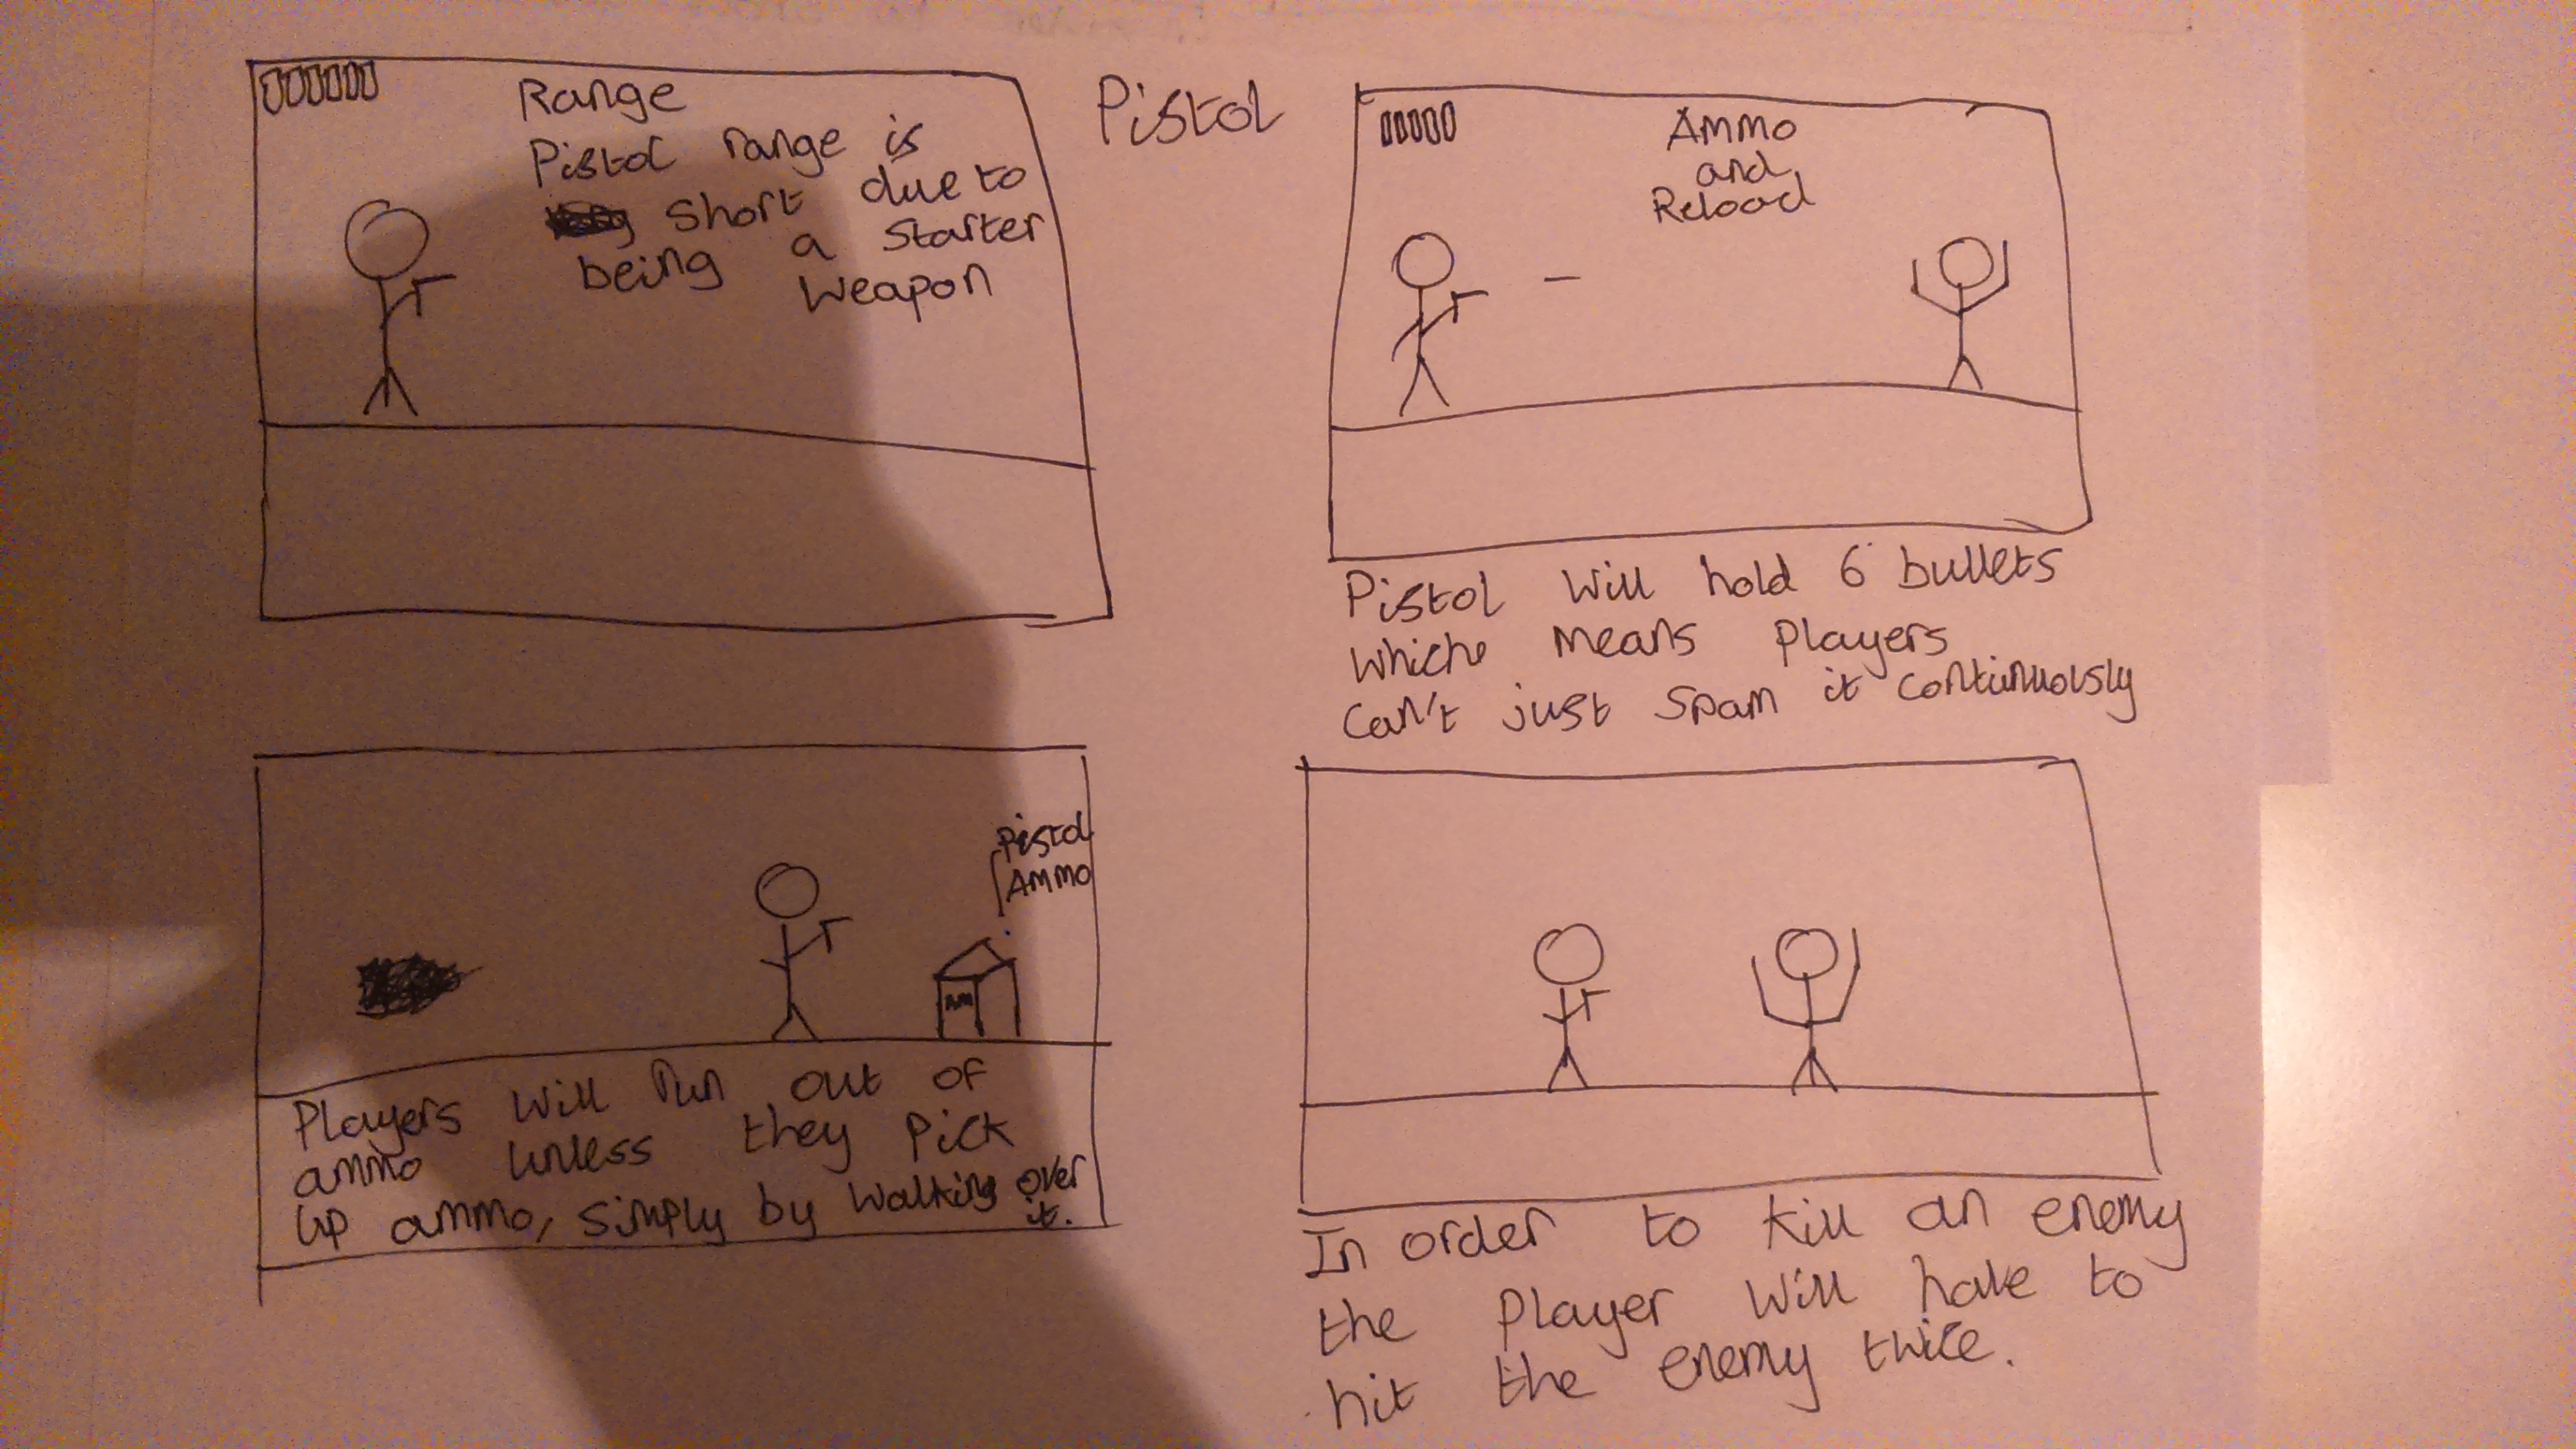 Pistol
Range
Pistol range is
short due to
being a starter
weapon
Ammo
and
Reload
Pistol will hold 6 bullets
whiche means players
can't just spam it continuously
Pistol
Ammo
AM
Players will run out of
ammo unless they pick
up ammo, simply by walking over
it.
In order to kill an enemy
the player will have to
hit the enemy twice.